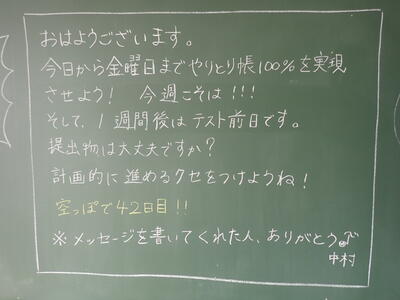 おはようございます。
今日から金曜日までやりとり帳100%を実現
させよう! 今週こそは!!!
そして、1週間後はテスト前日です。
提出物は大丈夫ですか?
計画的に進めるクセをつけようね!
空っぽで42日目!!
※メッセージを書いてくれた人、ありがとう♪
中村